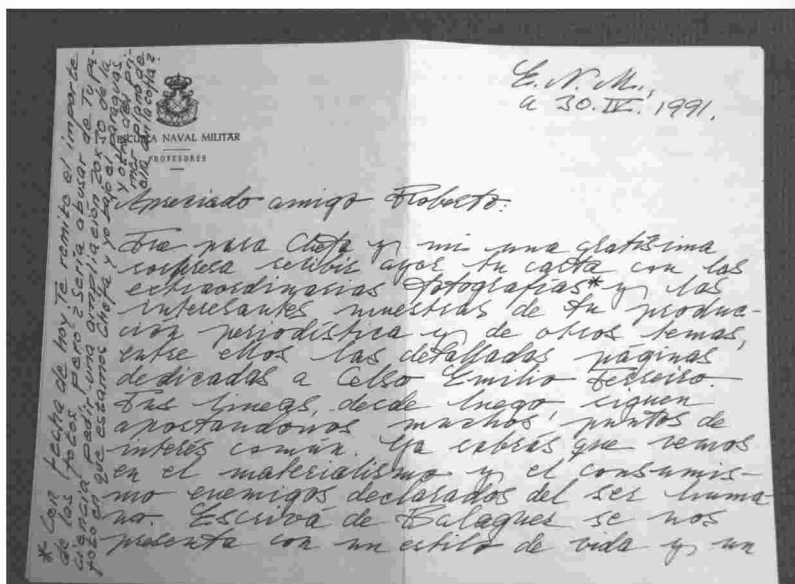 ESCUELA NAVAL MILITAR
PROFESORES
E. N. M.,
a 30. IV. 1991.
Apreciado amigo Roberto:
Fue para Chefa y mi una gratísima
sorpresa recibir ayer tu carta con las
extraordinarias fotografías* y las
interesantes muestras de tu produc-
ción periodística y de otros temas,
entre ellos las detalladas páginas
dedicadas a Celso Emilio Ferreiro.
Tus líneas, desde luego, siguen
aportándonos muchos puntos de
interés común. Ya sabrás que vemos
en el materialismo y el consumis-
mo enemigos declarados del ser huma-
no. Escrivá de Balaguer se nos
presenta con un estilo de vida y un
* Con fecha de hoy Te remito el importe
de las fotos. Pero ¿Sería abusar de Tu pa-
ciencia pedir una ampliación 20x30 de la
foto en que estamos Chefa y yo bajo el paraguas
y otra del pri-
mer plano de
ella en la cofia?